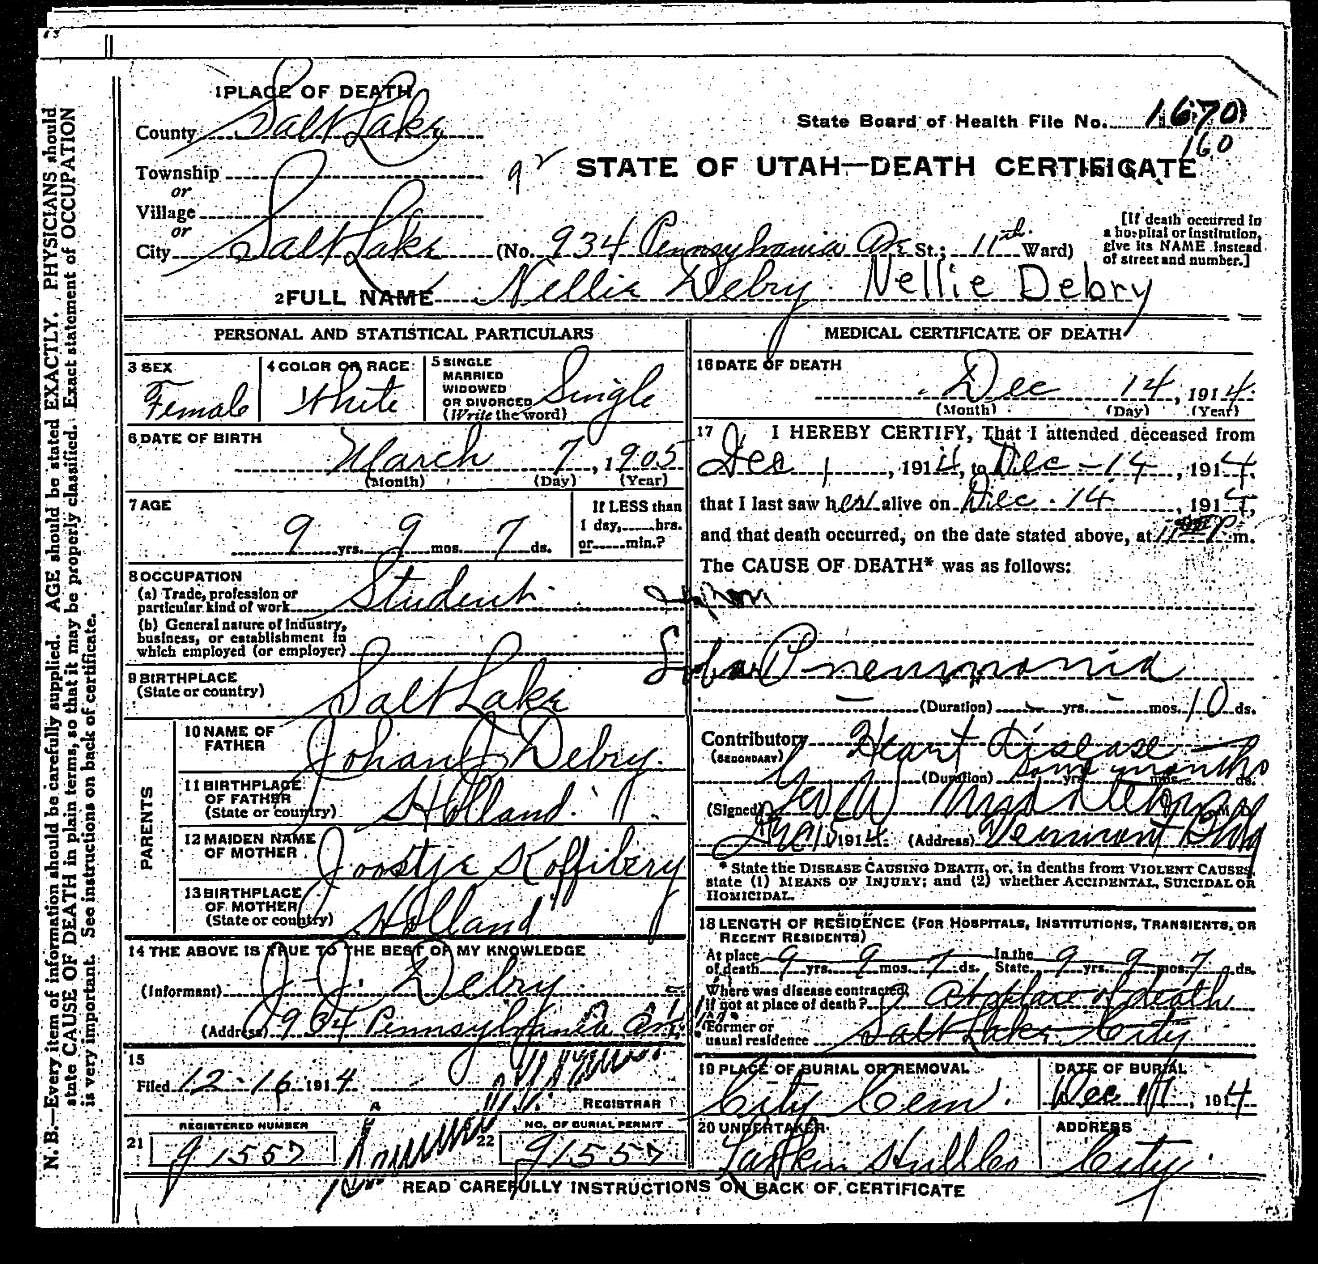 1 PLACE OF DEATH
County Salt Lake
State Board of Health File No. 1670
160
Township
or
Village
or
STATE OF UTAH—DEATH CERTIFICATE
City Salt Lake (No. 934 Pennsylvania Av St.; 11th Ward)
[If death occurred in a hospital or institution, give its NAME instead of street and number.]
2 FULL NAME Nellie Debry Nellie Debry
PERSONAL AND STATISTICAL PARTICULARS
3 SEX
Female
4 COLOR OR RACE
White
5 SINGLE
MARRIED
WIDOWED
OR DIVORCED
(Write the word)
Single
6 DATE OF BIRTH
March 7, 1905
(Month) (Day) (Year)
7 AGE
9 yrs. 9 mos. 7 ds.
If LESS than
1 day, hrs.
or min.?
8 OCCUPATION
(a) Trade, profession or
particular kind of work Student
(b) General nature of industry,
business, or establishment in
which employed (or employer)
9 BIRTHPLACE
(State or country)
Salt Lake
PARENTS
10 NAME OF
FATHER
Johan J Debry.
11 BIRTHPLACE
OF FATHER
(State or country)
Holland.
12 MAIDEN NAME
OF MOTHER
Joostje Koffibery
13 BIRTHPLACE
OF MOTHER
(State or country)
Holland
14 THE ABOVE IS TRUE TO THE BEST OF MY KNOWLEDGE
(Informant) J. J. Debry
(Address) 934 Pennsylvania Av.
15
Filed 12-16 1914
REGISTRAR
21
REGISTERED NUMBER
91557
22
NO. OF BURIAL PERMIT
91557
MEDICAL CERTIFICATE OF DEATH
16 DATE OF DEATH
Dec 14, 1914
(Month) (Day) (Year)
17 I HEREBY CERTIFY, That I attended deceased from
Dec 1, 1914, to Dec - 14, 1914,
that I last saw her alive on Dec. 14, 1914,
and that death occurred, on the date stated above, at 11 P m.
The CAUSE OF DEATH* was as follows:
Lobar Pneumonia
(Duration) yrs. mos. 10 ds.
Contributory Heart disease
(SECONDARY)
(Duration) some yrs. months mos. ds.
(Signed) M D
1914 (Address) Vermont Bldg
* State the DISEASE CAUSING DEATH, or, in deaths from VIOLENT CAUSES, state (1) MEANS OF INJURY; and (2) whether ACCIDENTAL, SUICIDAL OR HOMICIDAL.
18 LENGTH OF RESIDENCE (FOR HOSPITALS, INSTITUTIONS, TRANSIENTS, OR RECENT RESIDENTS)
At place
of death 9 yrs. 9 mos. 7 ds. In the State 9 yrs. 9 mos. 7 ds.
Where was disease contracted,
if not at place of death? At place of death
Former or
usual residence Salt Lake City
19 PLACE OF BURIAL OR REMOVAL
City Cem.
DATE OF BURIAL
Dec 17, 1914
20 UNDERTAKER
Larkin Hull Co
ADDRESS
City.
READ CAREFULLY INSTRUCTIONS ON BACK OF CERTIFICATE
N. B.—Every item of information should be carefully supplied. AGE should be stated EXACTLY. PHYSICIANS should
state CAUSE OF DEATH in plain terms, so that it may be properly classified. Exact statement of OCCUPATION
is very important. See instructions on back of certificate.